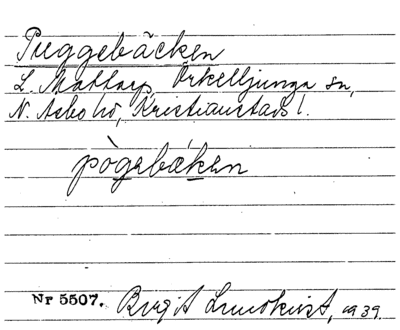 Puggebäcken
L. Mattarp, Örkelljunga sn,
N. Åsbo hd, Kristianstads l.
pògebæken
Nr 5507. Birgit Lundkvist, 1939.